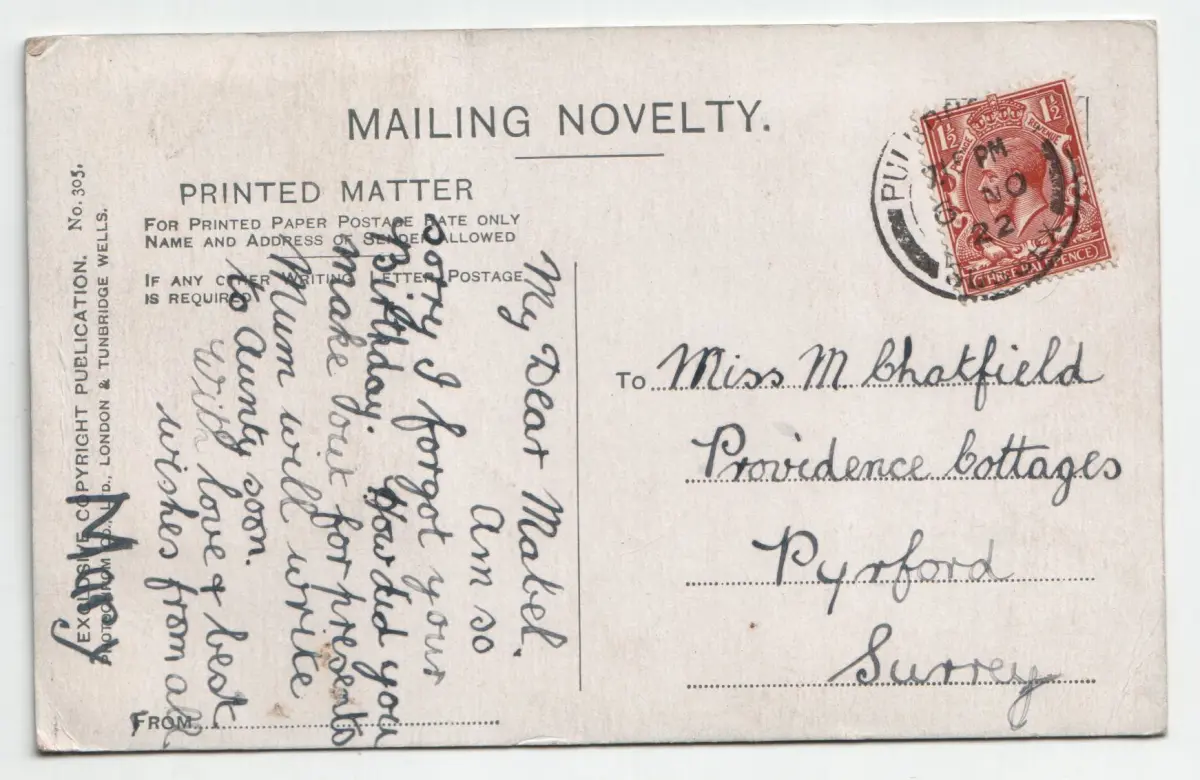 MAILING NOVELTY.
PRINTED MATTER
FOR PRINTED PAPER POSTAGE RATE ONLY
NAME AND ADDRESS OF SENDER ALLOWED
IF ANY OTHER WRITING LETTER POSTAGE
IS REQUIRED
EXCLUSIVE COPYRIGHT PUBLICATION. No. 305.
PHOTOCHROM CO. LTD., LONDON & TUNBRIDGE WELLS.
My Dear Mabel.
Am so
sorry I forgot your
Birthday. How did you
make out for presents
Mum will write
to Aunty soon.
With love & best
wishes from all
Mary
FROM
TO Miss M Chatfield
Providence Cottages
Pyrford
Surrey
1½ 1½
POSTAGE REVENUE
THREE HALFPENCE
PUL
PM
NO
22
SUSSEX